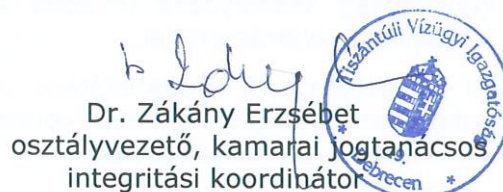 Dr. Zákány Erzsébet
osztályvezető, kamarai jogtanácsos
integritási koordinátor
Tiszántúli Vízügyi Igazgatóság
* Debrecen *
19.